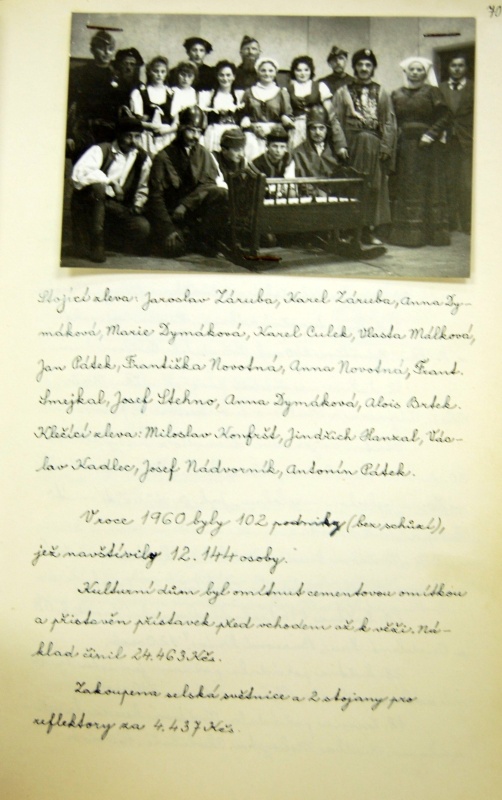 70
Stojící zleva: Jaroslav Záruba, Karel Záruba, Anna Dy-
máková, Marie Dymáková, Karel Culek, Vlasta Málková,
Jan Pátek, Františka Novotná, Anna Novotná, Frant.
Smejkal, Josef Stehno, Anna Dymáková, Alois Brtek.
Klečící zleva: Miloslav Konfršt, Jindřich Hanzal, Vác-
lav Kadlec, Josef Nádvorník, Antonín Pátek.
V roce 1960 byly 102 podniky (bez schůzí),
jež navštívily 12.144 osoby.
Kulturní dům byl omítnut cementovou omítkou
a přistavěn přístavek před vchodem až k věži. Ná-
klad činil 24.463 Kčs.
Zakoupena selská světnice a 2 stojany pro
reflektory za 4.437 Kčs.